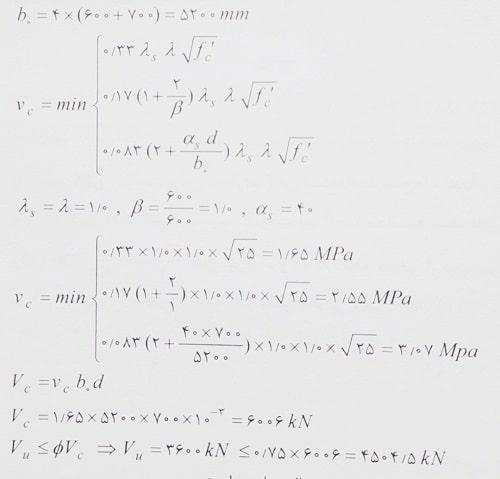 b₀ = ۴×(۶۰۰+۷۰۰) = ۵۲۰۰ mm
v_c = min { ۰/۳۳ λ_s λ √f_c'
۰/۱۷ (۱ + ۲/β) λ_s λ √f_c'
۰/۰۸۳ (۲ + α_s d / b₀) λ_s λ √f_c'
λ_s = λ = ۱/۰ , β = ۶۰۰/۶۰۰ = ۱/۰ , α_s = ۴۰
v_c = min { ۰/۳۳ ×۱/۰×۱/۰× √۲۵ = ۱/۶۵ MPa
۰/۱۷ (۱ + ۲/۱) ×۱/۰×۱/۰× √۲۵ = ۲/۵۵ MPa
۰/۰۸۳ (۲ + ۴۰×۷۰۰ / ۵۲۰۰) ×۱/۰×۱/۰× √۲۵ = ۳/۰۷ Mpa
V_c = v_c b₀ d
V_c = ۱/۶۵×۵۲۰۰×۷۰۰×۱۰⁻³ = ۶۰۰۶ kN
V_u ≤ ϕV_c ⇒ V_u = ۳۶۰۰ kN ≤ ۰/۷۵×۶۰۰۶ = ۴۵۰۴/۵ kN